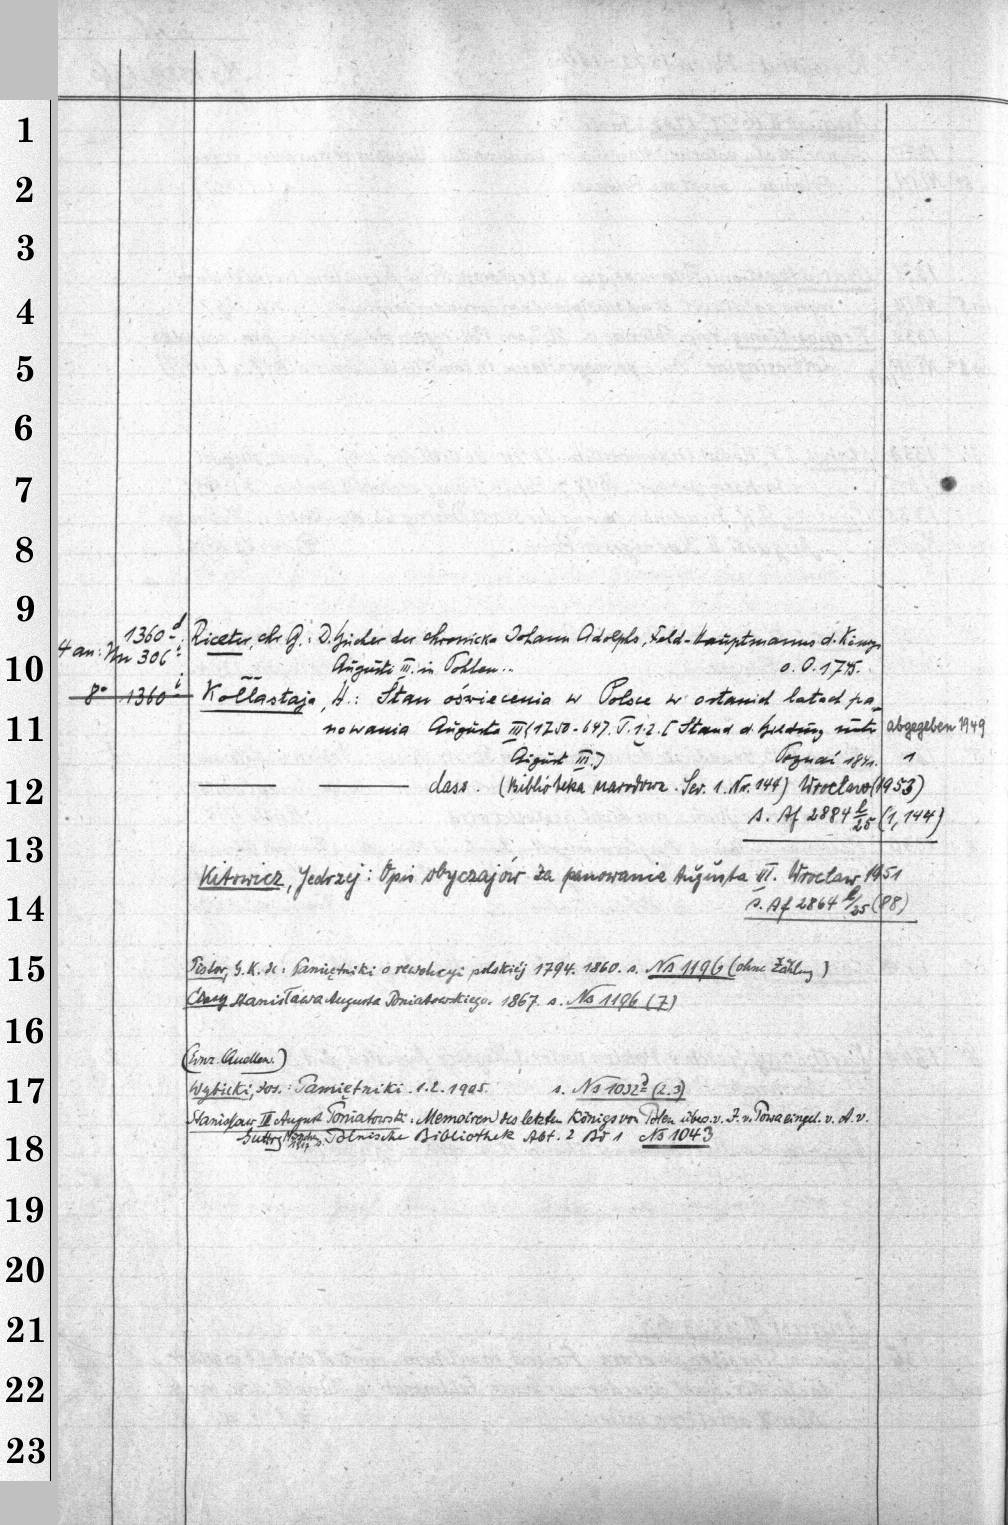 1
2
3
4
5
6
7
8
9
1360 d
Riccter, chr. G.: D. Bücher der chronicka Johann Adolphs, Feld-Hauptmanns d. Königs
4 an: Nn 306 i
10
Augusti III. in Pohlen.. o. O. 1745.
8° 1360 i
Kołłastaja, H.: Stan oświecenia w Polsce w ostanid latad pa_
11
nowania Augusta III (1750-64). T. 1.2. [Stand d. Bildung unter
abgegeben 1949
August III.) Poznań 1841. 1
12
dass. (Biblioteka narodowa. Ser. 1. Nr. 144) Wrocław (1953)
s. Af 2884 b/25 (1, 144)
13
Kitowicz, Jedrzej: Opis obyczajów za panowania Augusta III. Wrocław 1951
14
s. Af 2864 b/25 (88)
15
Pistor, G. K. de: Pamiętniki o rewolucyi polskiéj 1794. 1860. s. No 1196 (ohne Zählung)
Stanisława Augusta Poniatowskiego. 1867. s. No 1196 (7)
16
(Einz. Quellen.)
17
Wybicki, Jos.: Pamiętniki. 1.2. 1905. s. No 1032 d (2.3)
Stanisław II August Poniatowski: Memoiren des letzten Königs von Polen übers. v. J. v. Powa eingel. v. A. v.
18
Guttry München 1917 s. Polnische Bibliothek Abt. 2 Bd 1 No 1043
19
20
21
22
23